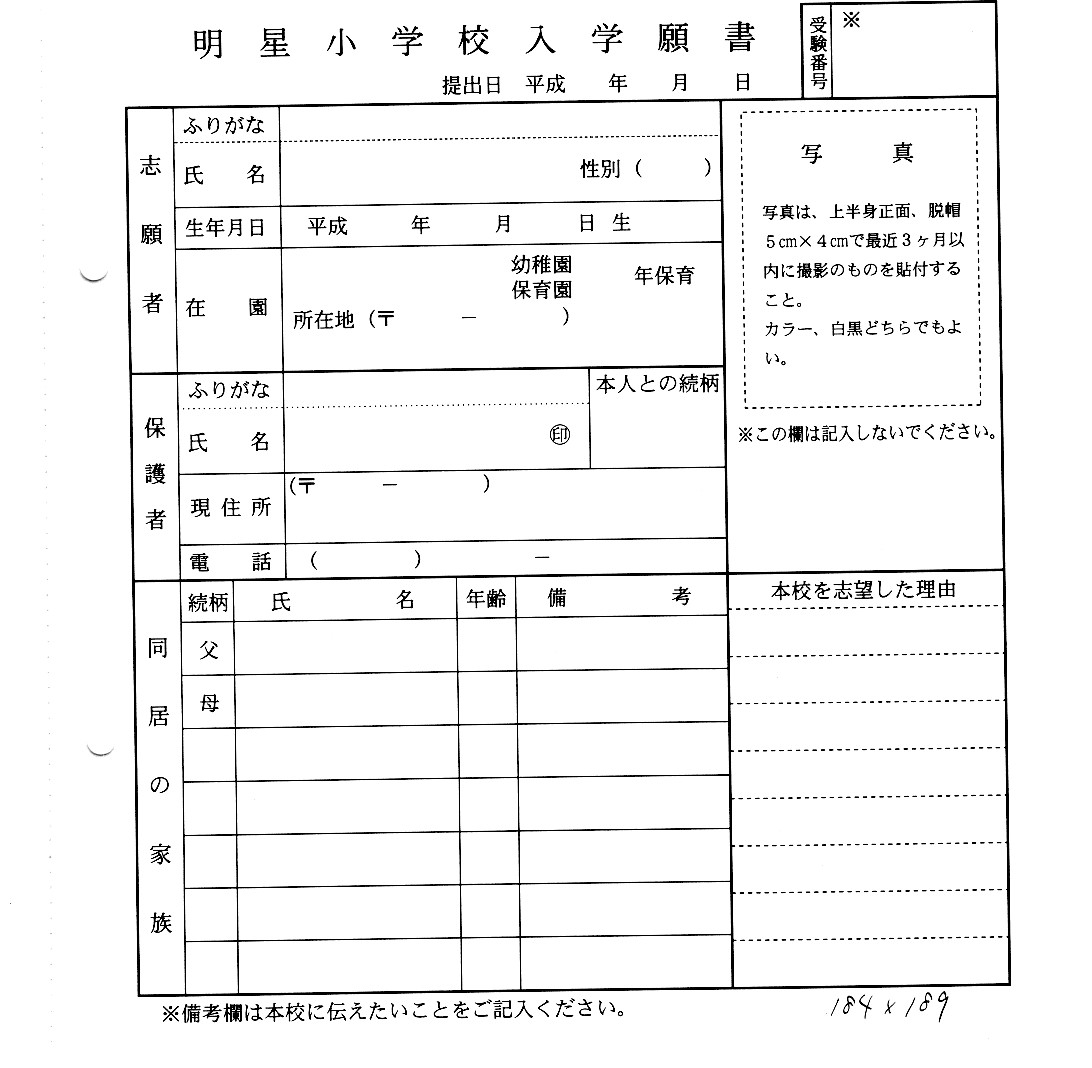 明星小学校入学願書
受験番号
※
提出日 平成 年 月 日
志願者
ふりがな
氏 名 性別( )
生年月日 平成 年 月 日 生
在 園 幼稚園 保育園 年保育
所在地(〒 － )
写 真
写真は、上半身正面、脱帽
5cm×4cmで最近3ヶ月以
内に撮影のものを貼付する
こと。
カラー、白黒どちらでもよ
い。
※この欄は記入しないでください。
保護者
ふりがな
本人との続柄
氏 名 ㊞
現住所 (〒 － )
電 話 ( ) －
同居の家族
続柄 氏 名 年齢 備 考
父
母
本校を志望した理由
※備考欄は本校に伝えたいことをご記入ください。
184×189